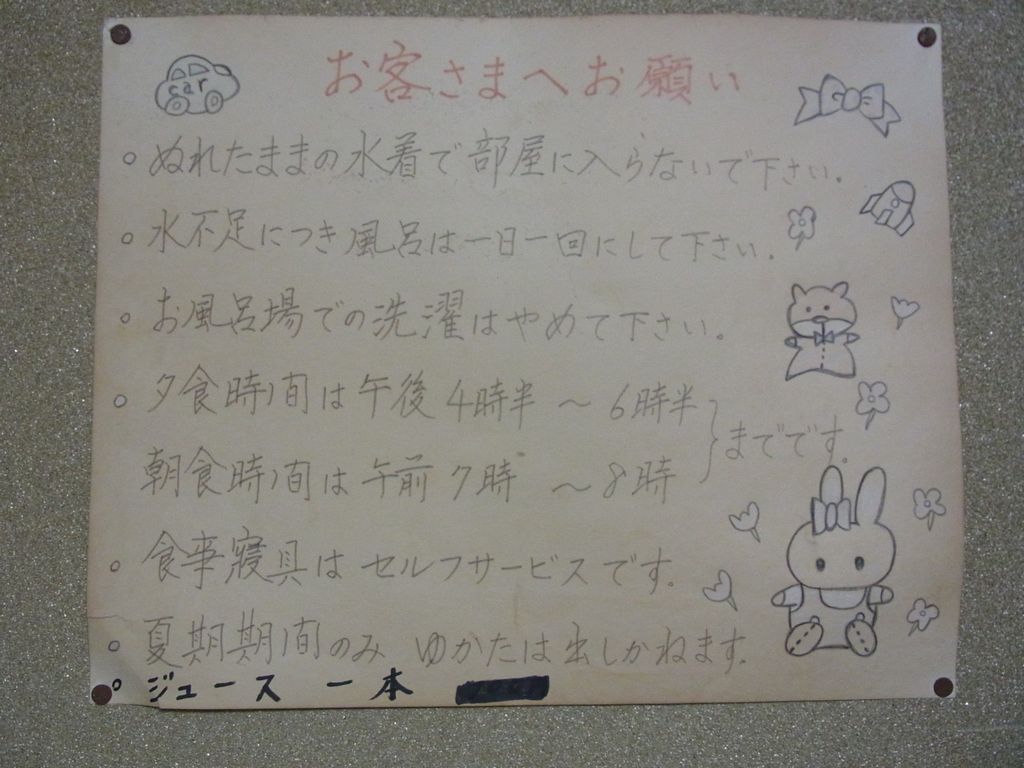 car
お客さまへお願い
○ ぬれたままの水着で部屋に入らないで下さい。
○ 水不足につき風呂は一日一回にして下さい。
○ お風呂場での洗濯はやめて下さい。
○ 夕食時間は午後4時半 ～ 6時半
朝食時間は午前7時 ～ 8時
} までです。
○ 食事寝具はセルフサービスです。
○ 夏期期間のみ ゆかたは出しかねます。
○ ジュース 一本